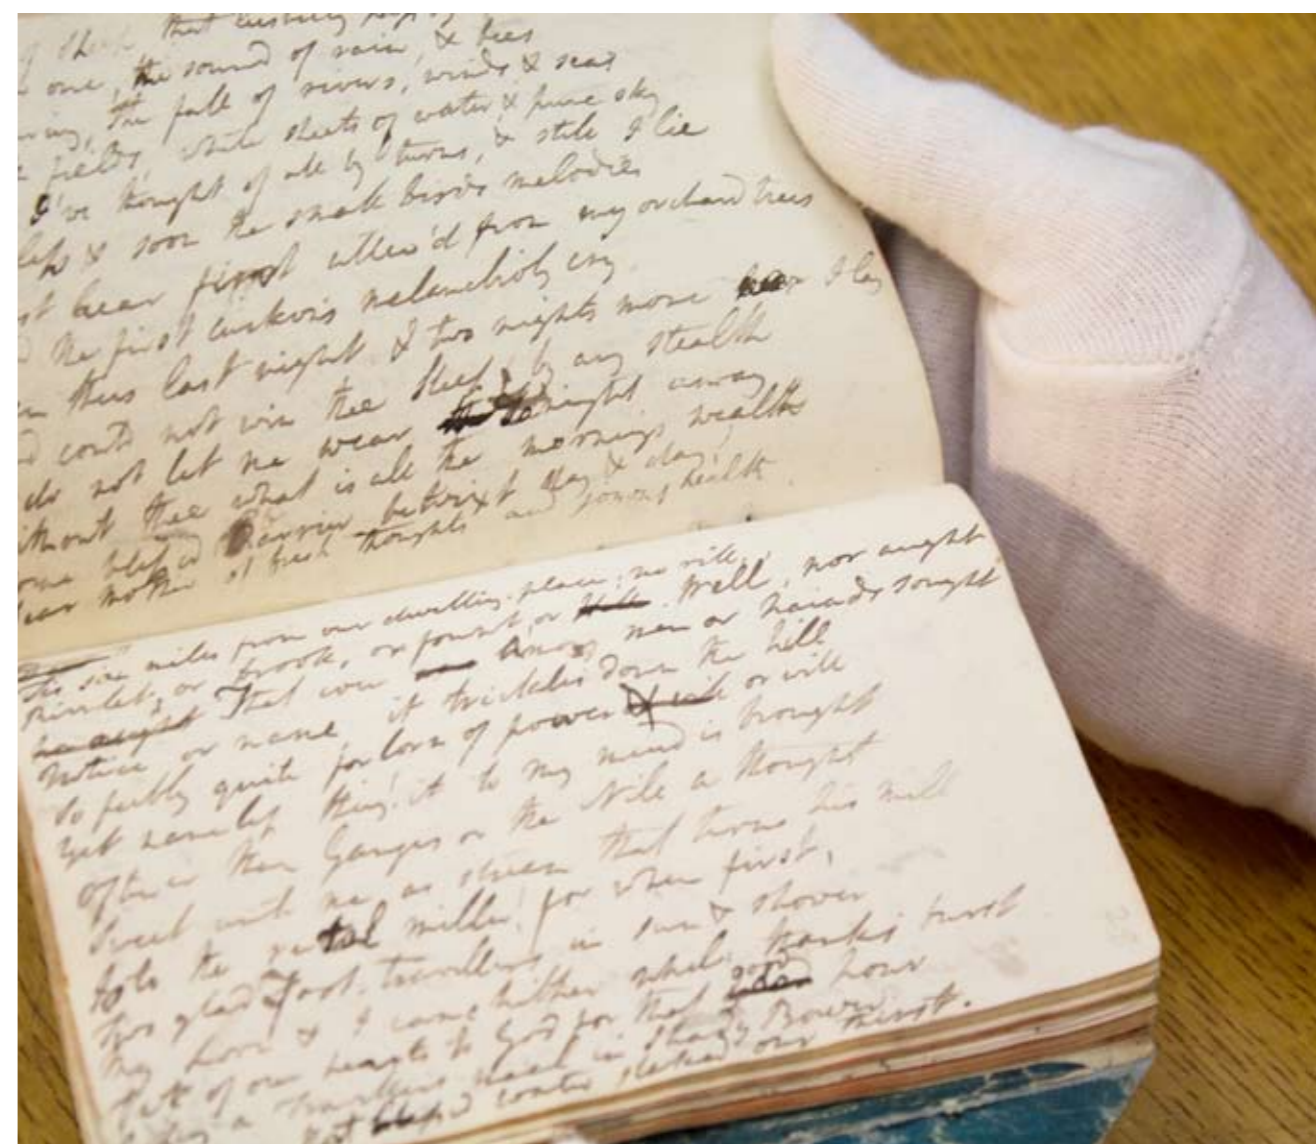 sheep that leisurely pass by
one, the sound of rain, & bees
the fall of rivers, winds & seas
fields, white sheets of water & pure sky
I've thought of all by turns, & still I lie
& soon the small birds melodies
hear first utter'd from my orchard trees
the first cuckoos melancholy cry
thus last night & two nights more I lay
could not win thee Sleep, by any stealth
do not let me wear to night away
thee what is all the mornings wealth
blessed Barrier betwixt day & day!
mother of fresh thoughts and joyous health.
six miles from our dwelling-place; no rill,
Rivulet, or brook, or fount, or Well, nor aught
no aught That ever Among men or naiads sought
Notice or name it trickles down the hill
So feebly quite forlorn of power or will
Yet nameless thing! it to my mind is brought
Oftener than Ganges or the Nile a thought
Sweet with me as stream that turns his mill
to the miller! for when first,
Two glad foot-travellers in sun & shower
My Love & I came hither while thanks burst
Out of our hearts to God for that good hour
a meal in shady Bower
water slaked our thirst.